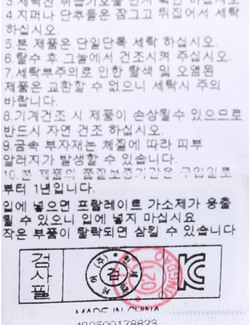 4.지퍼나 단추들은 잠그고 뒤집어서 세탁
하십시오.
5.본 제품은 단일단독 세탁 하십시오.
6.탈수 후 그늘에서 건조시켜 주십시오.
7.세탁부주의로 인한 탈색 및 오염된
제품은 교환할 수 없으니 세탁시 주의
바랍니다.
8.기계건조 시 제품이 손상될수 있으므로
반드시 자연 건조 하십시오.
9.금속 부자재는 체질에 따라 피부
알러지가 발생할 수 있습니다.
10.본 제품의 품질보증기간은 구입일로
부터 1년입니다.
입에 넣으면 프탈레이트 가소제가 용출
될 수 있으니 입에 넣지 마십시요
작은 부품이 탈락되면 삼킬 수 있습니다
검사필
MADE IN CHINA